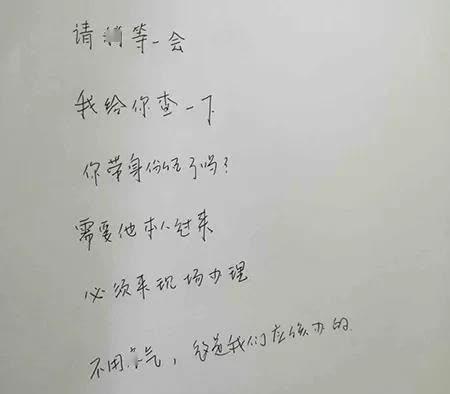 请等一会
我给你查一下
你带身份证了吗?
需要他本人过来
必须来现场办理
不用气,这是我们应该办的